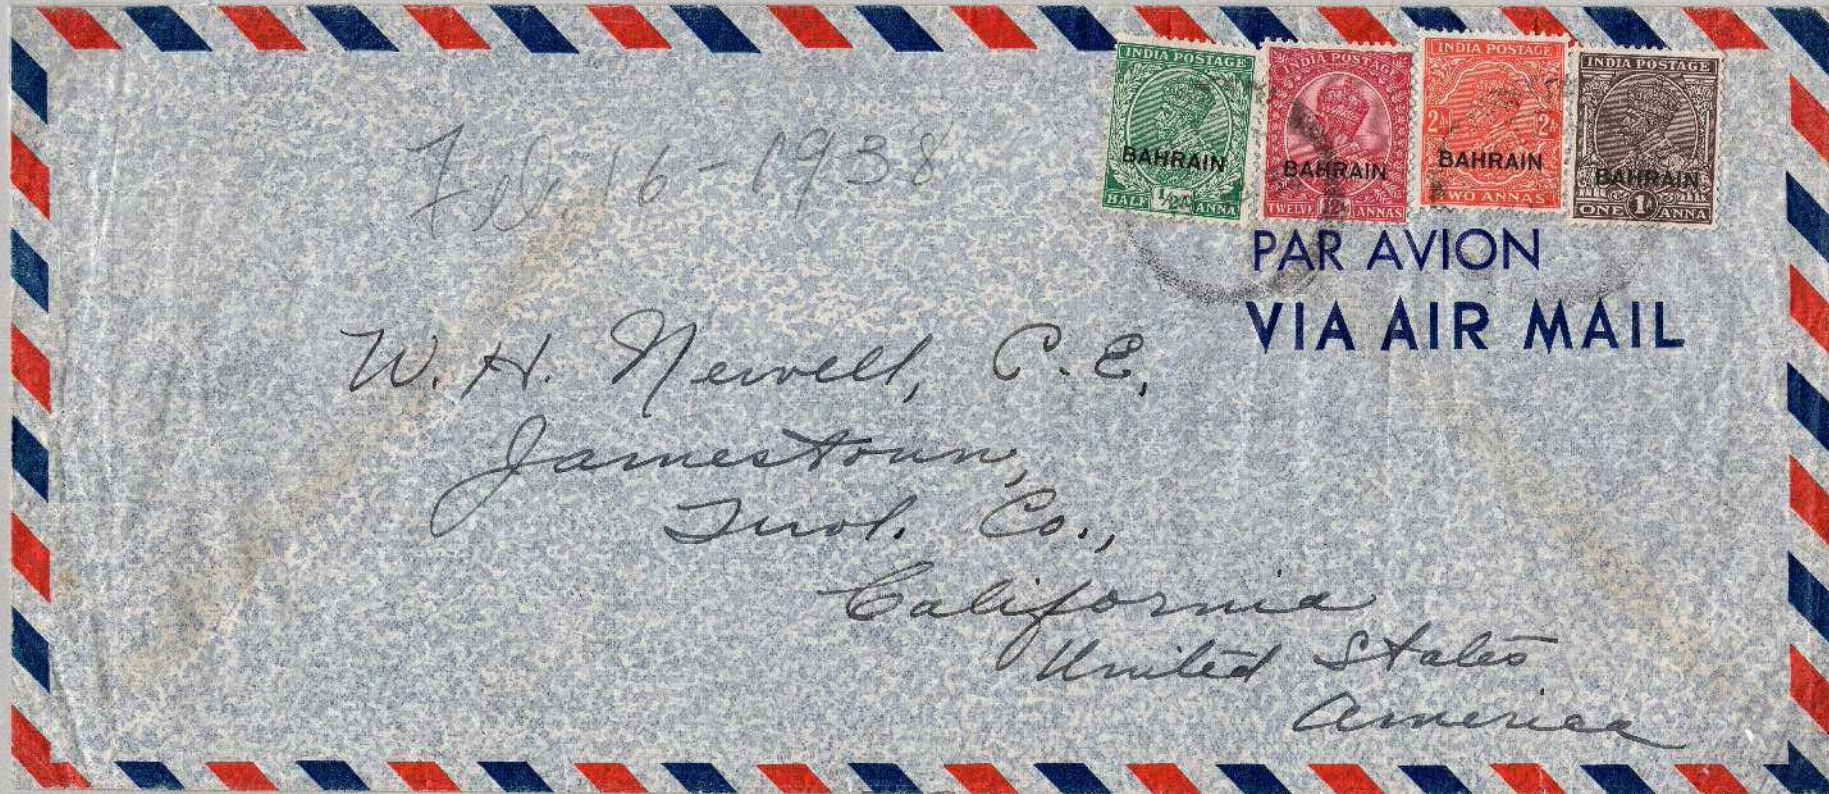 INDIA POSTAGE
BAHRAIN
HALF 1/2A ANNA
INDIA POSTAGE
BAHRAIN
TWELVE 12A ANNAS
INDIA POSTAGE
2A 2A
BAHRAIN
TWO ANNAS
INDIA POSTAGE
BAHRAIN
ONE 1A ANNA
Feb. 16-1938
PAR AVION
VIA AIR MAIL
W. H. Newell, C. E,
Jamestown,
Tuol. Co.,
California
United States
America